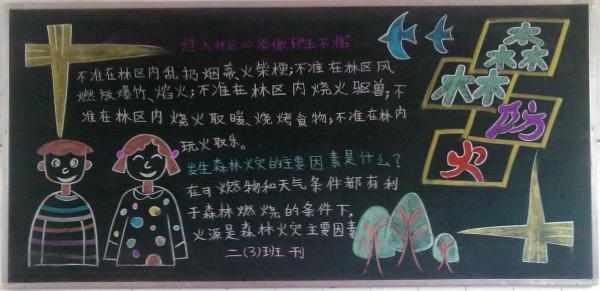 进入林区必须做到五不准
不准在林区内乱扔烟蒂,火柴梗;不准在林区风
燃放爆竹、焰火;不准在林区内烧火驱兽;不
准在林区内烧火取暖、烧烤食物;不准在林内
玩火取乐。
发生森林火灾的主要因素是什么?
在可燃物和天气条件都有利
于森林燃烧的条件下,
火源是森林火灾主要因素
二(3)班 刊
森
林
防
火